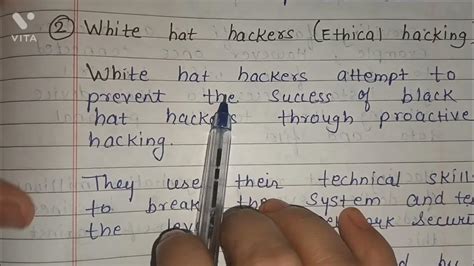 VITA
② White hat hackers (Ethical hacking
White hat hackers attempt to
prevent the Success of black
hat hackers through proactive
hacking.
They use their technical skill
to break the System and te
the securi
by